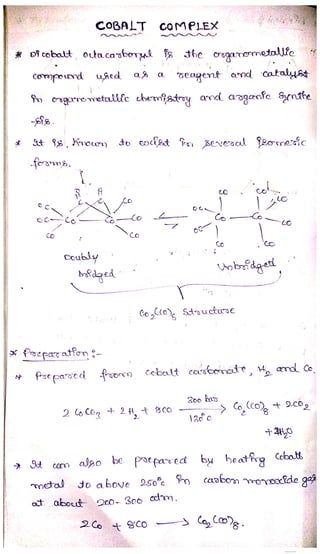 COBALT COMPLEX
* Dicobalt octacarbonyl is the organometallic
compound used as a reagent and catalyst
in organometallic chemistry and organic synthe
-sis.
* It is known to exist in several isomeric
forms.
OC CO CO CO
OC Co Co CO Co Co CO
CO CO OC CO CO
Doubly bridged
Unbridged
Co2(CO)8 Structure
* Preparation :-
* Prepared from cobalt carbonate, H2 and Co.
2 CoCO3 + 2H2 + 8CO 300 bar → 120°C Co2(CO)8 + 2CO2
+ 2H2O
→ It can also be prepared by heating Cobalt
metal to above 250°C in carbon monoxide gas
at about 200-300 atm.
2Co + 8CO → Co2(CO)8.